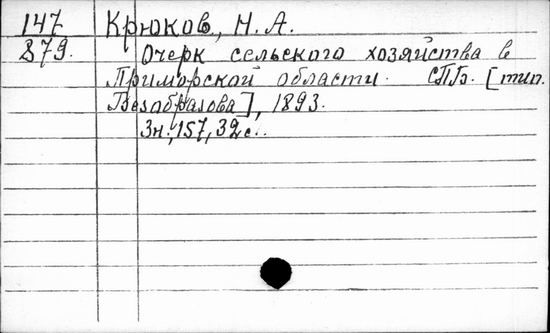 147 Крюков, Н. А.
879. Очерк сельского хозяйства в
Приморской области. СПБ. [тип.
Безобразова], 1893.
3н., 157, 32 с.